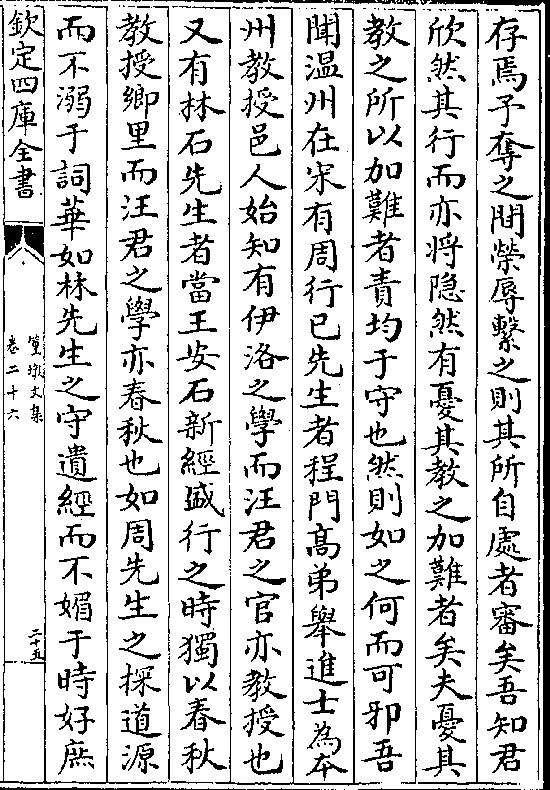 存焉予奪之間榮辱繫之則其所自處者審矣吾知君
欣然其行而亦将隐然有憂其教之加難者矣夫憂其
教之所以加難者責均于守也然則如之何而可邪吾
聞温州在宋有周行已先生者程門髙弟舉進士為本
州教授邑人始知有伊洛之學而汪君之官亦教授也
又有林石先生者當王安石新經盛行之時獨以春秋
教授鄉里而汪君之學亦春秋也如周先生之探道源
而不溺于詞華如林先生之守遺經而不媚于時好庶
欽定四庫全書
篁墩文集
卷二十六
二十五